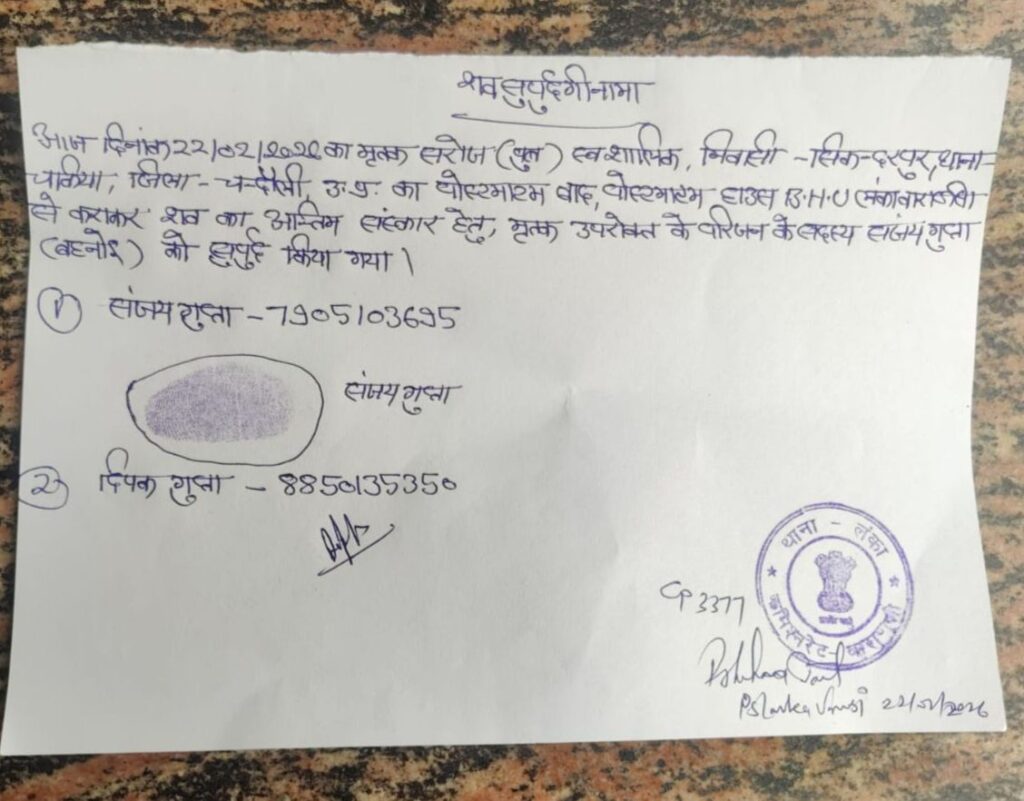 शव सुपुर्दगीनामा
आज दिनांक 22/02/2026 का मृतक सरोज (पुत्र) स्व. शापिक, निवासी - सिकन्दरपुर, थाना -
चकिया, जिला - चन्दौली, उ.प्र. का पोस्टमार्टम बाद, पोस्टमार्टम हाउस B.H.U (लंका वाराणसी)
से कराकर शव का अन्तिम संस्कार हेतु, मृतक उपरोक्त के परिजन के सदस्य संजय गुप्ता
(बहनोई) को सुपुर्द किया गया।
① संजय गुप्ता - 7905103695
संजय गुप्ता
② दिपक गुप्ता - 8850135350
थाना - लंका
कमिश्नरेट - वाराणसी
CP 3377
PS Lanka Vnnsi 22/02/2026